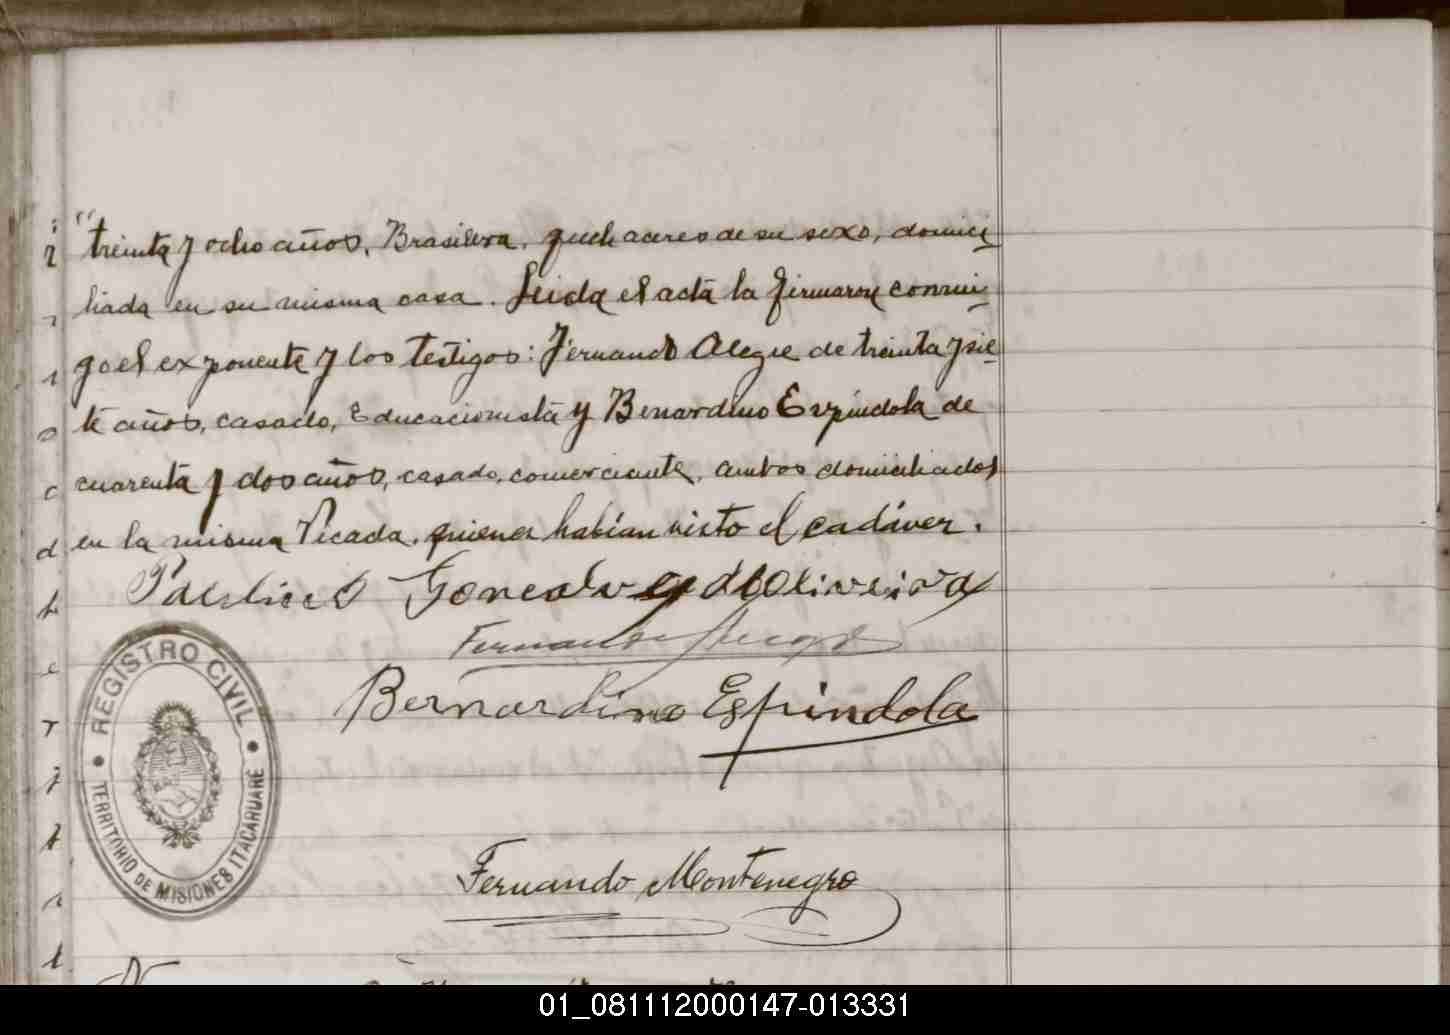 "treinta y ocho años, Brasilera, quehaceres de su sexo, domici
liada en su misma casa. Leida el acta la firmaron conmi
go el exponente y los testigos: Fernando Alegre de treinta y sie
te años, casado, Educacionista y Benardino Espindola de
cuarenta y dos años, casado, comerciante, ambos domiciliados
en la misma Picada, quienes habian visto el cadáver.
Gonsalves de Oliveira
Fernando Alegre
Bernardino Espindola
REGISTRO CIVIL
TERRITORIO DE MISIONES ITACARUARÉ
Fernando Montenegro
01_081112000147-013331